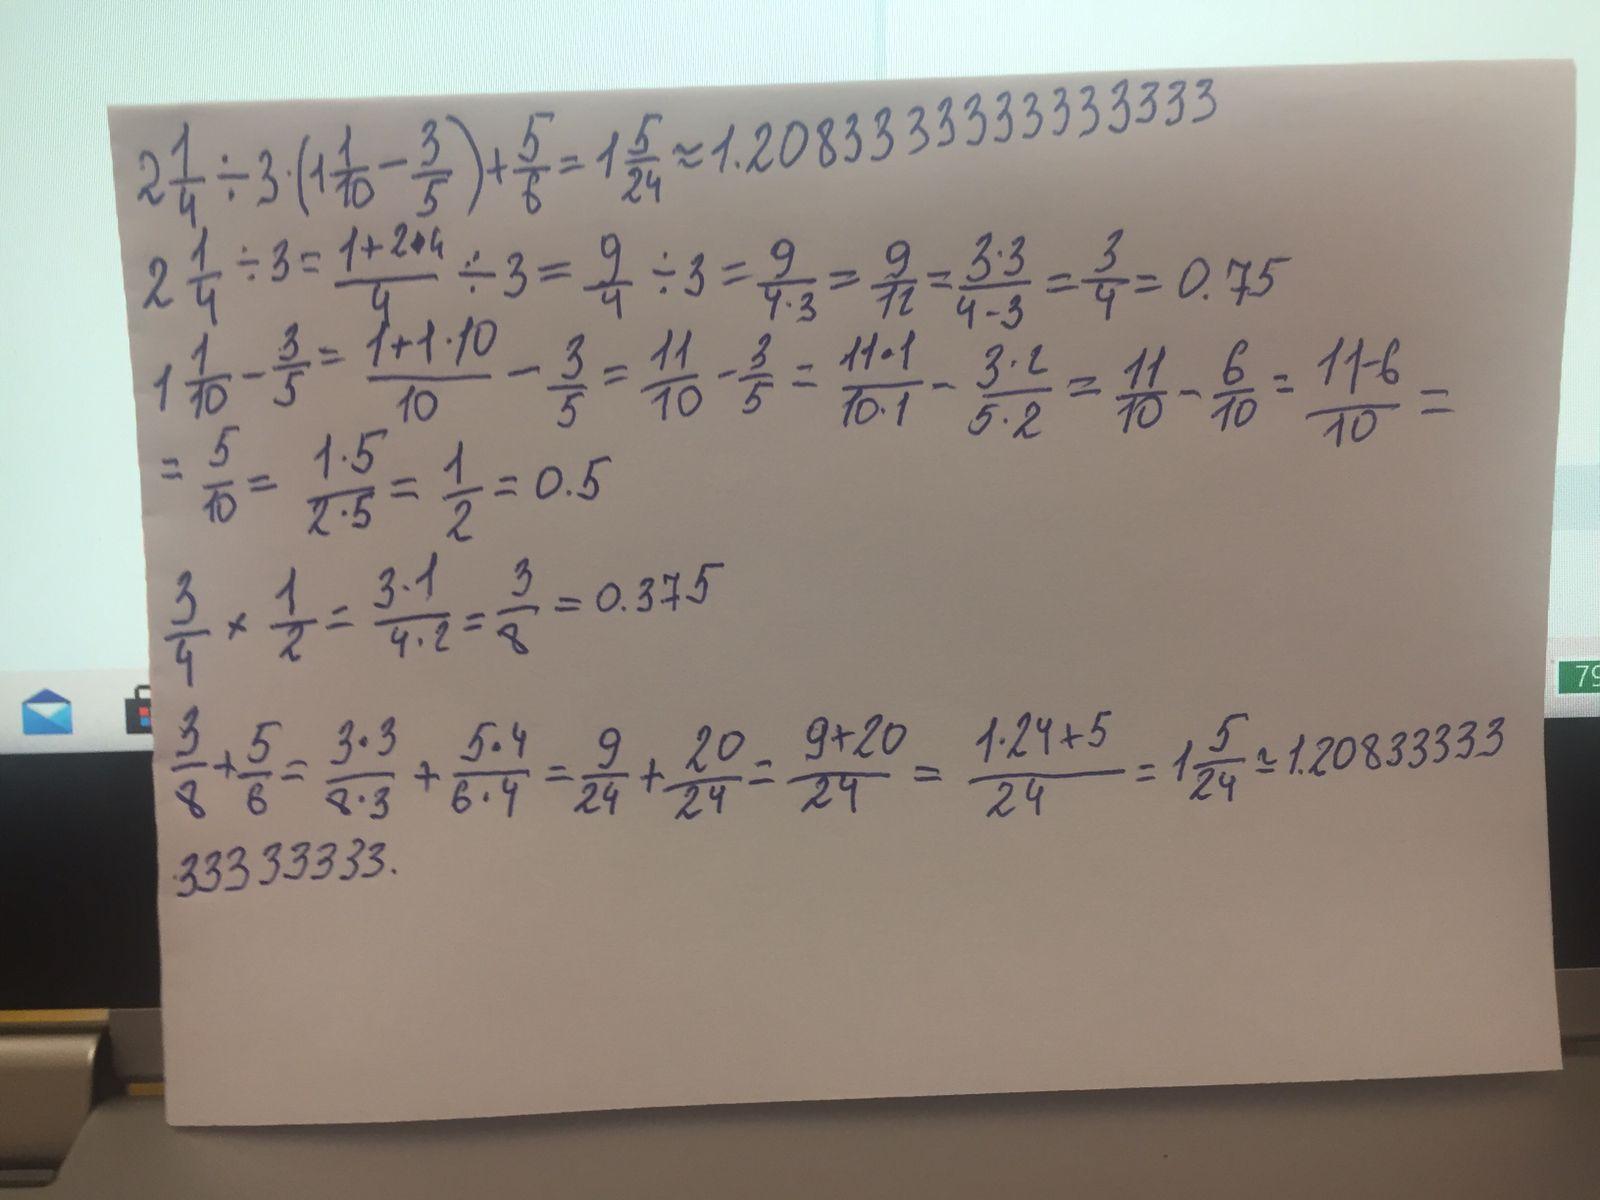 2 1/4 ÷ 3·(1 1/10 − 3/5) + 5/6 = 1 5/24 ≈ 1.2083333333333333
2 1/4 ÷ 3 = (1+2·4)/4 ÷ 3 = 9/4 ÷ 3 = 9/(4·3) = 9/12 = (3·3)/(4-3) = 3/4 = 0.75
1 1/10 − 3/5 = (1+1·10)/10 − 3/5 = 11/10 − 3/5 = (11·1)/(10·1) − (3·2)/(5·2) = 11/10 − 6/10 = (11-6)/10 =
= 5/10 = (1·5)/(2·5) = 1/2 = 0.5
3/4 × 1/2 = (3·1)/(4·2) = 3/8 = 0.375
3/8 + 5/6 = (3·3)/(8·3) + (5·4)/(6·4) = 9/24 + 20/24 = (9+20)/24 = (1·24+5)/24 = 1 5/24 ≈ 1.20833333
33333333.
79